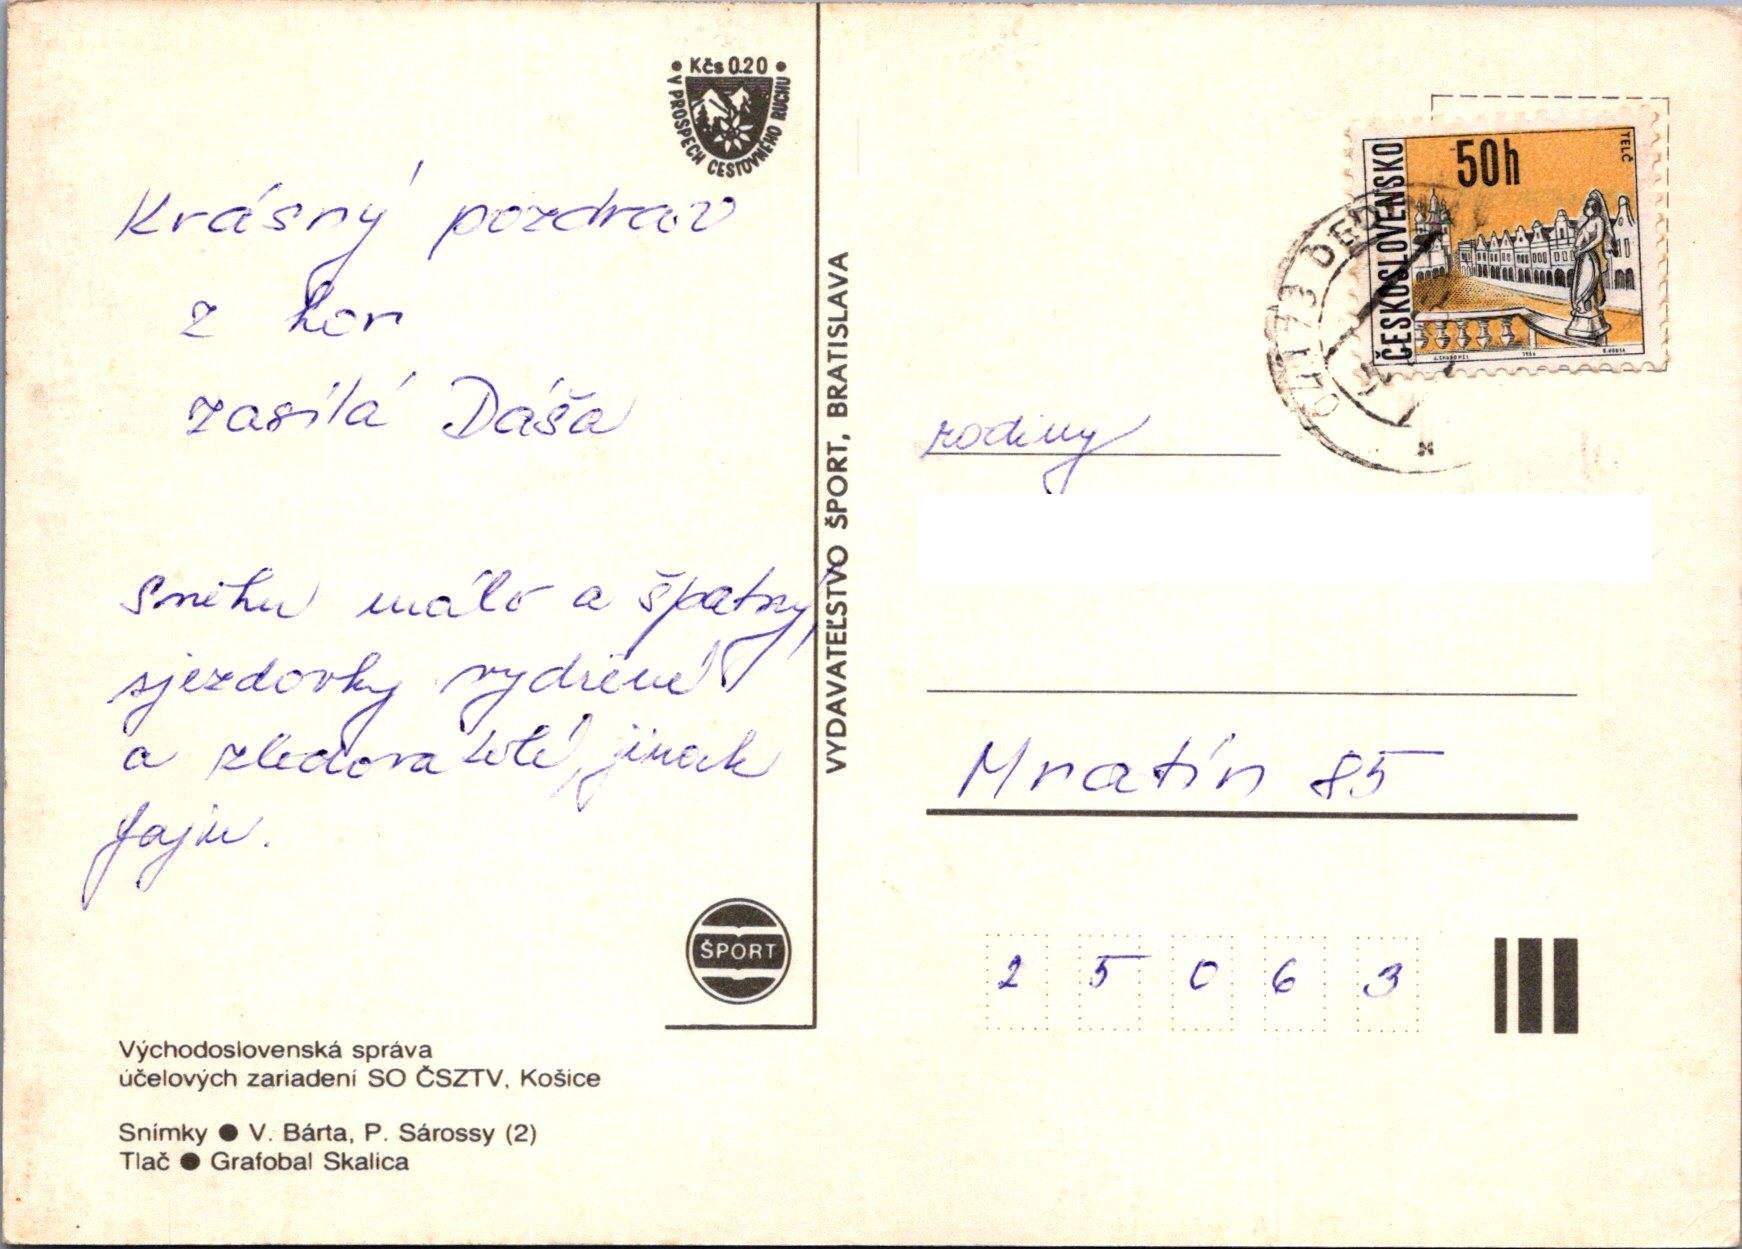 Kčs 0.20
V PROSPECH CESTOVNÉHO RUCHU
Krásný pozdrav
z hor
zasílá Dáša
Sněhu málo a špatný,
sjezdovky vydřené
a zledovatělé, jinak
fajn.
ŠPORT
Východoslovenská správa
účelových zariadení SO ČSZTV, Košice
Snímky ● V. Bárta, P. Sárossy (2)
Tlač ● Grafobal Skalica
VYDAVATEĽSTVO ŠPORT, BRATISLAVA
ČESKOSLOVENSKO
50h
TELČ
1966
rodiny
Mratín 85
25063